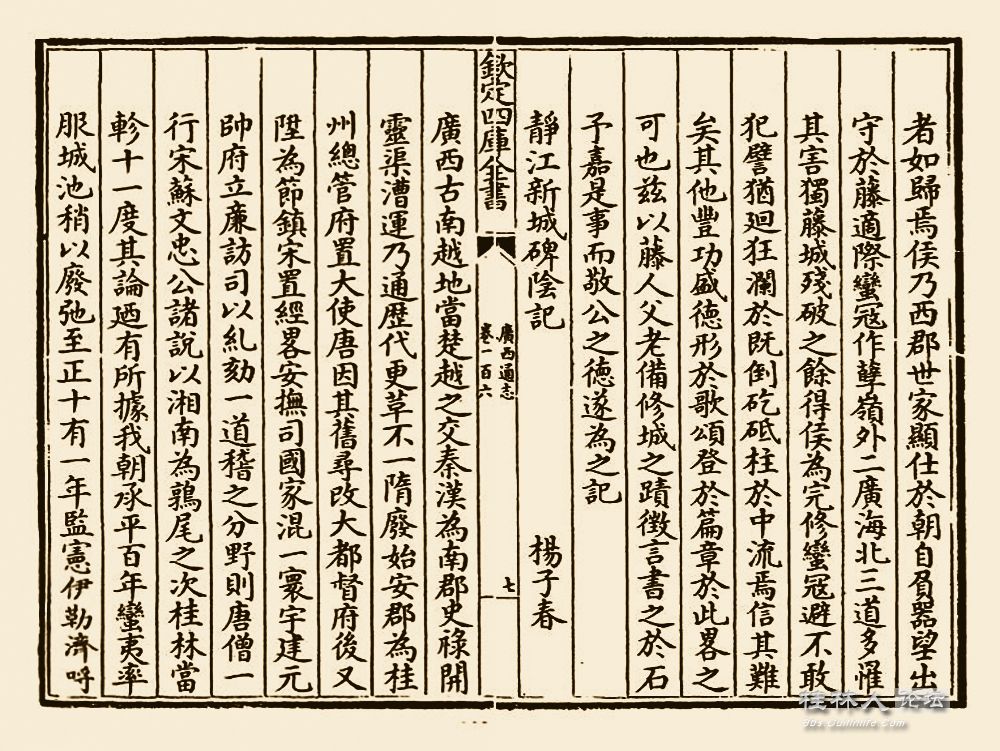 者如歸焉侯乃西郡世家顯仕於朝自負器望出
守於藤適際蠻冦作孽嶺外二廣海北三道多懼
其害獨藤城殘破之餘得侯為完修蠻冦避不敢
犯譬猶廻狂瀾於既倒矻砥柱於中流焉信其難
矣其他豐功盛徳形於歌頌登於篇章於此畧之
可也兹以藤人父老備修城之蹟徴言書之於石
予嘉是事而敬公之徳遂為之記
靜江新城碑陰記　楊子春
欽定四庫全書　廣西通志　卷一百六　七
廣西古南越地當楚越之交秦漢為南郡史祿開
靈渠漕運乃通歴代更草不一隋廢始安郡為桂
州總管府置大使唐因其舊尋改大都督府後又
陞為節鎮宋置經畧安撫司國家混一寰宇建元
帥府立廉訪司以糺劾一道稽之分野則唐僧一
行宋蘇文忠公諸說以湘南為鶉尾之次桂林當
軫十一度其論廼有所據我朝承平百年蠻夷率
服城池稍以廢弛至正十有一年監憲伊勒濟呼
桂林人论坛
bbs.guilinlife.com